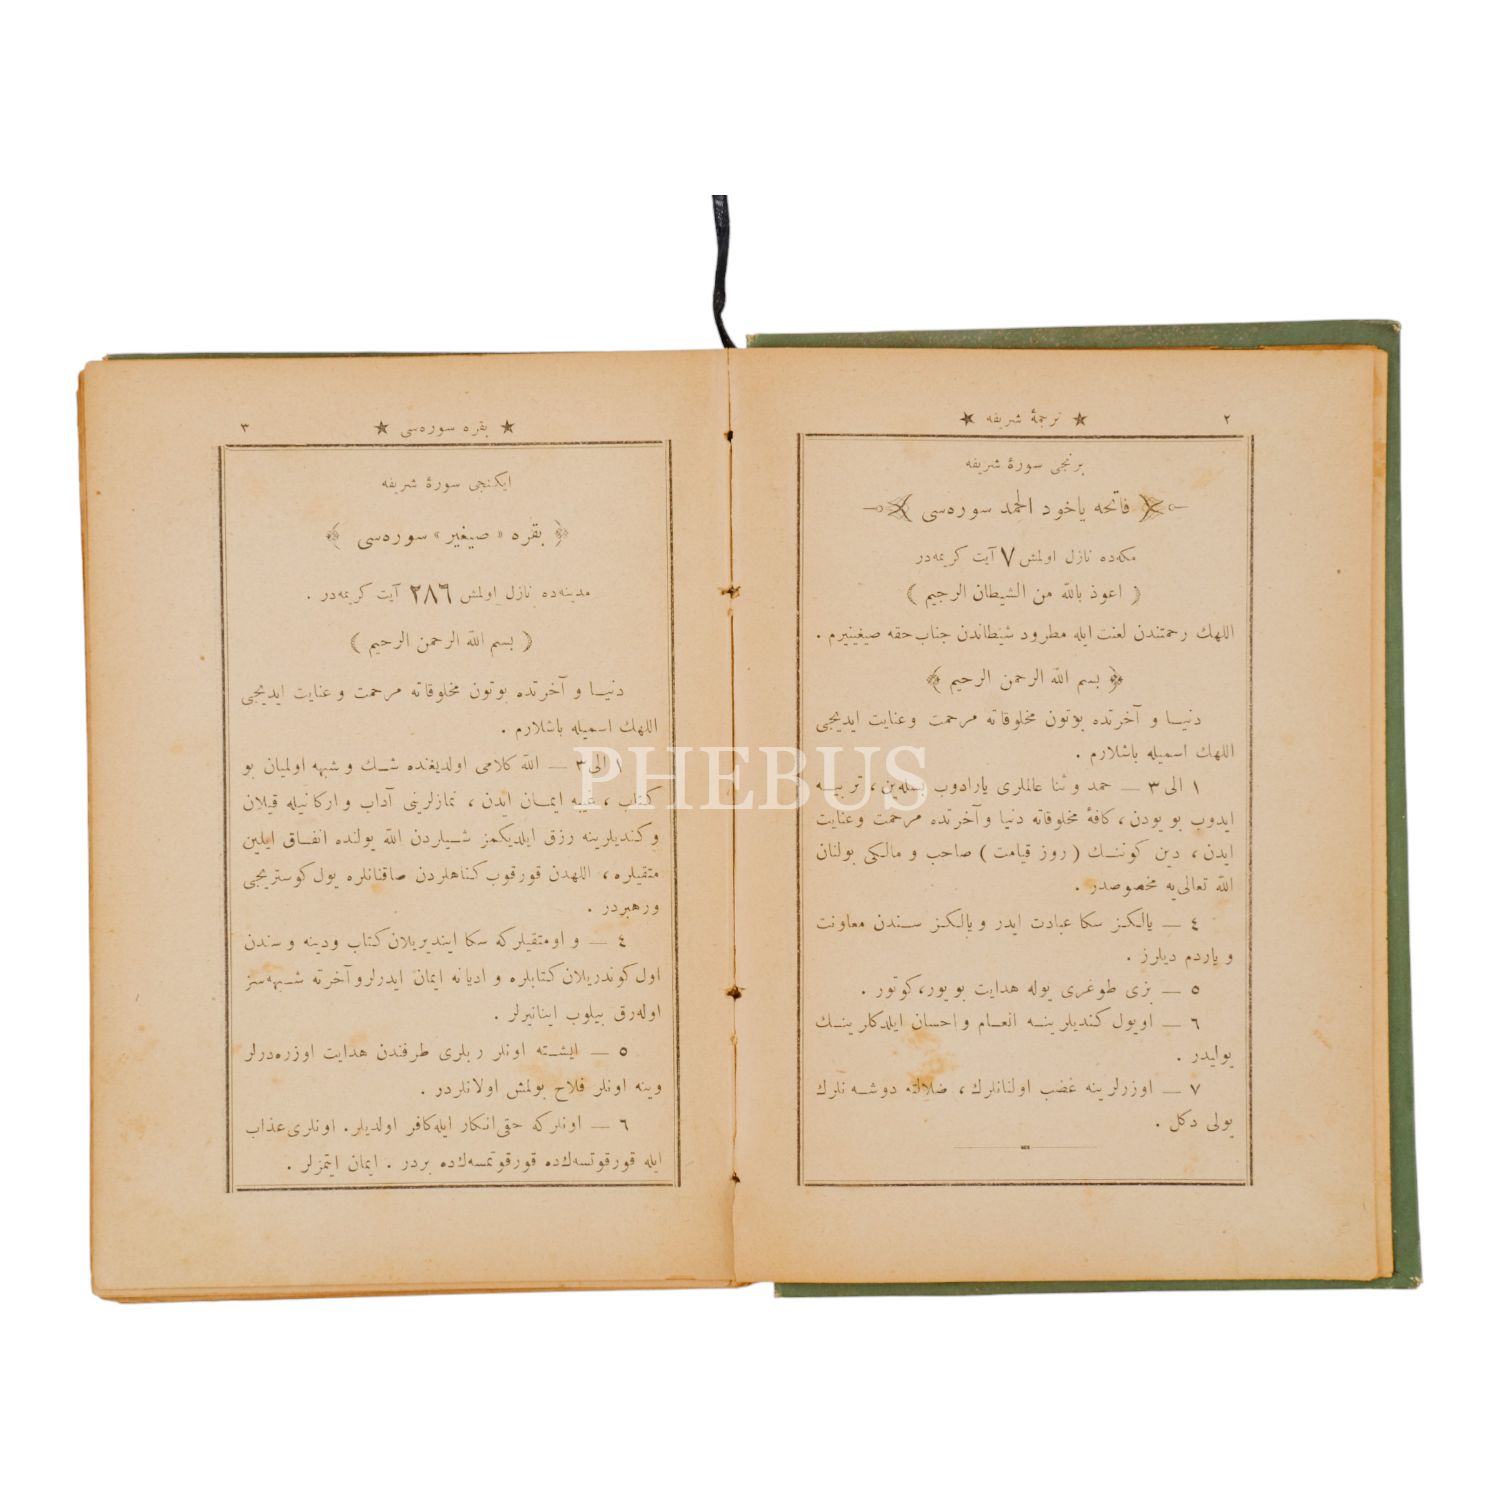 ٢
★ ترجمهٔ شریفه ★
برنجی سورهٔ شریفه
فاتحه یاخود الحمد سوره‌سی
مکه‌ده نازل اولمش ٧ آیت کریمه‌در
﴿ اعوذ بالله من الشیطان الرجیم ﴾
اللهك رحمتندن لعنت ایله مطرود شیطاندن جناب حقه صیغینیرم .
﴿ بسم الله الرحمن الرحیم ﴾
دنیا و آخرتده بوتون مخلوقاته مرحمت و عنایت ایدیجی
اللهك اسمیله باشلارم .
١ الی ٣ — حمد و ثنا عالملری یارادوب بسله‌ین ، تربیه
ایدوب بویودن ، کافهٔ مخلوقاته دنیا و آخرتده مرحمت و عنایت
ایدن ، دین کوننك ( روز قیامت ) صاحب و مالکی بولنان
الله تعالی‌یه مخصوصدر .
٤ — یالکز سکا عبادت ایدر و یالکز سندن معاونت
و یاردم دیلرز .
٥ — بزی طوغری یوله هدایت بویور، کوتور .
٦ — اویول کندیلرینه انعام و احسان ایلدکلرینك
یولیدر .
٧ — اوزرلرینه غضب اولنانلرك ، ضلالته دوشه‌نلرك
یولی دکل .
★ بقره سوره‌سی ★
٣
ایکنجی سورهٔ شریفه
﴿ بقره « صیغیر » سوره‌سی ﴾
مدینه‌ده نازل اولمش ٢٨٦ آیت کریمه‌در .
﴿ بسم الله الرحمن الرحیم ﴾
دنیا و آخرتده بوتون مخلوقاته مرحمت و عنایت ایدیجی
اللهك اسمیله باشلارم .
١ الی ٣ — الله کلامی اولدیغنده شك و شبهه اولمیان بو
کتاب ، غیبه ایمان ایدن ، نمازلرینی آداب و ارکانیله قیلان
و کندیلرینه رزق ایلدیکمز شیلردن الله یولنده انفاق ایلین
متقیلره ، اللهدن قورقوب کناهلردن صاقنانلره یول کوستریجی
و رهبردر .
٤ — و اومتقیلرکه سکا ایندیریلان کتاب ودینه و سندن
اول کوندریلان کتابلره و ادیانه ایمان ایدرلر و آخرته شبهه‌سز
اوله‌رق بیلوب اینانیرلر .
٥ — ایشته اونلر ربلری طرفندن هدایت اوزره‌درلر
وینه اونلر فلاح بولمش اولانلردر .
٦ — اونلرکه حقی انکار ایله کافر اولدیلر . اونلری عذاب
ایله قورقوتسه‌ك‌ده قورقوتمسه‌ك‌ده بردر . ایمان ایتمزلر .
PHEBUS